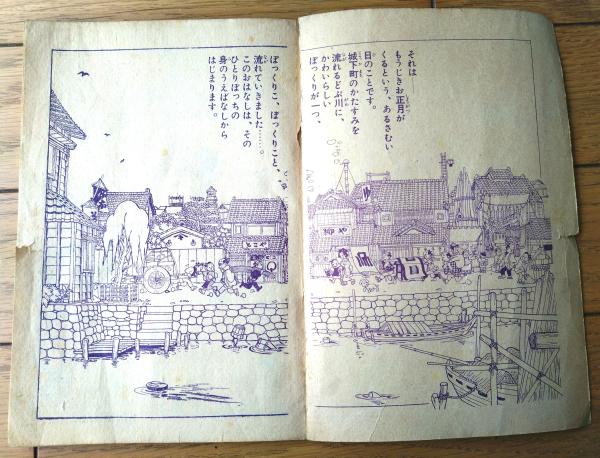 それは
もうじきお正月が
くるという、あるさむい
日のことです。
城下町のかたすみを
流れるどぶ川に、
かわいらしい
ぽっくりが一つ、
ぽっくりこ、ぽっくりこと、
流れていきました……。
このおはなしは、その
ひとりぼっちの
身のうえばなしから
はじまります。
とこや
柳や
ゆ